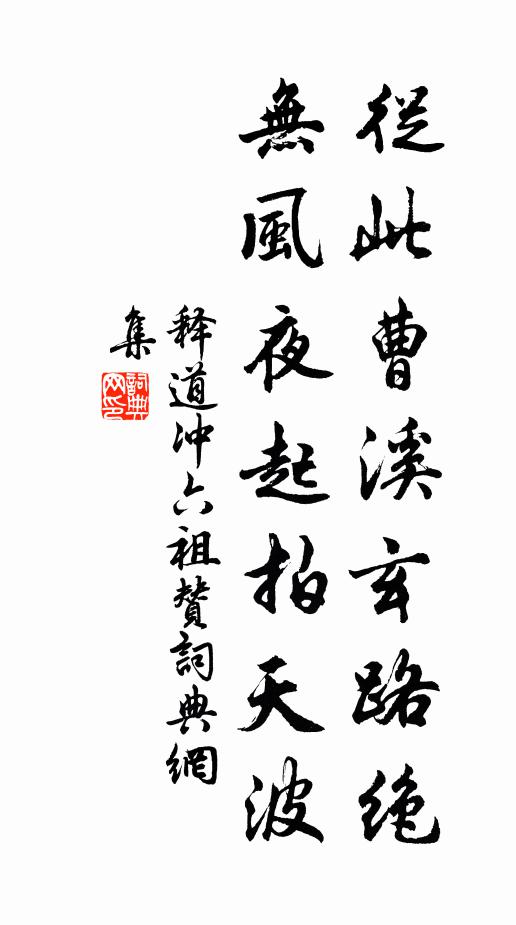 從此曹溪玄路絶
無風夜起拍天波
释道沖六祖賛詞典網
集
詞典
网印